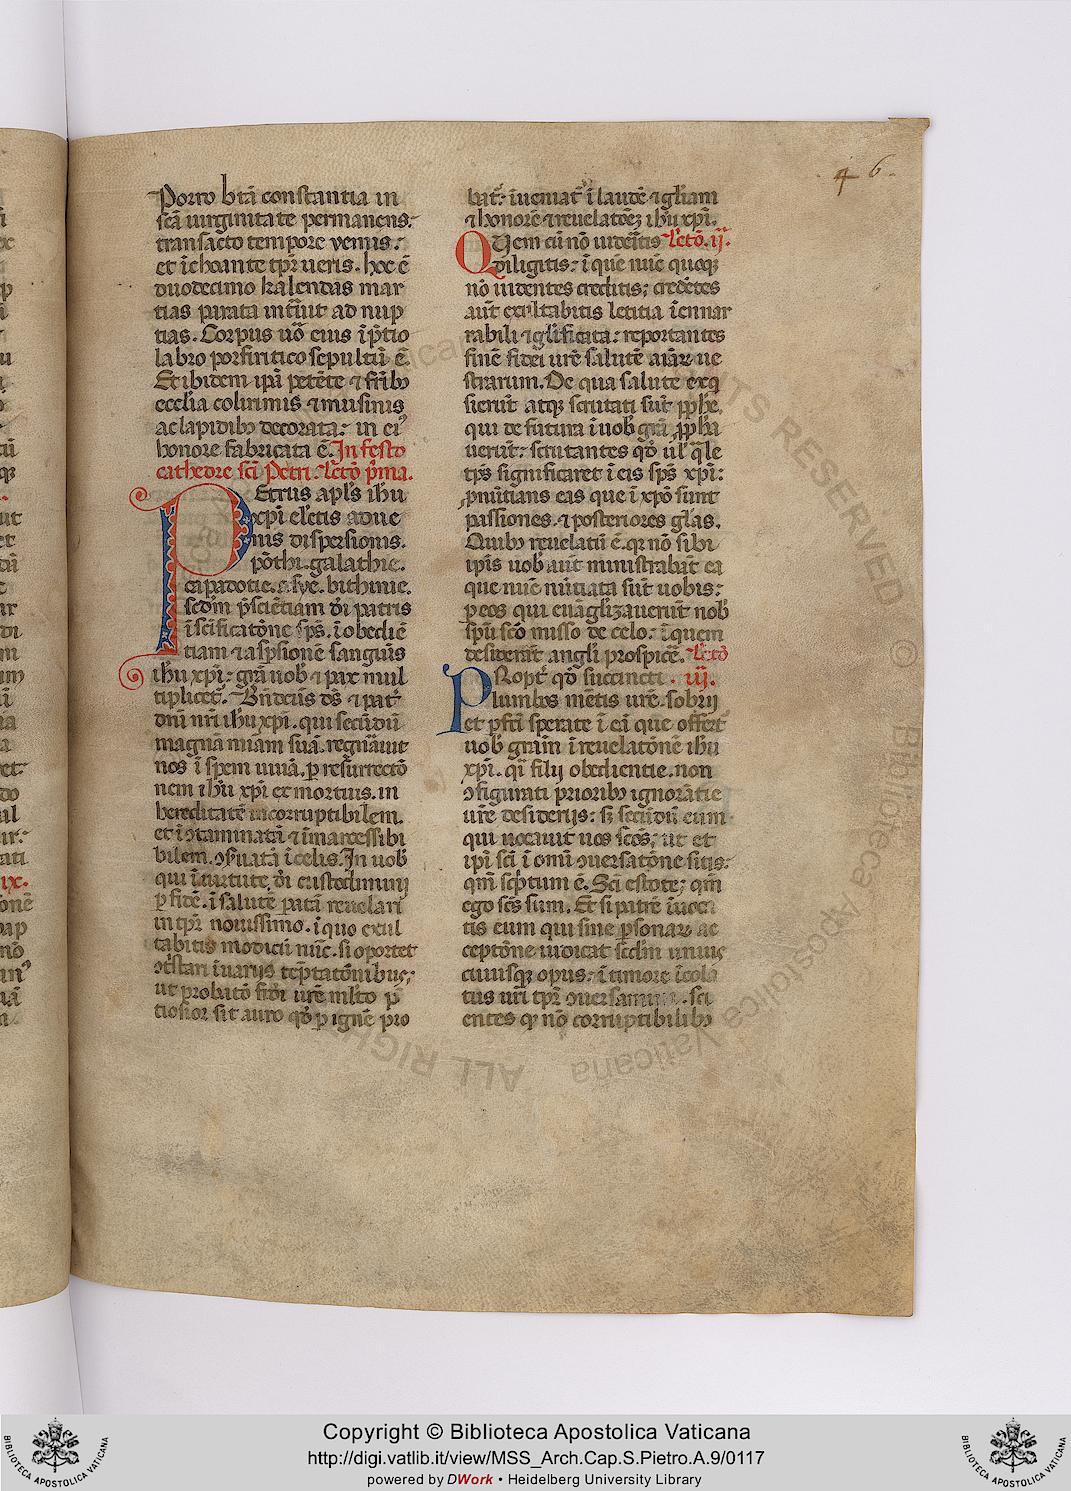 46.
Porro btā constantia in
scā uirginitate permanens.
transacto tempore venus:
et īchoante tpr̄ ueris. hoc ē
duodecimo kalendas mar
tias pirata
tias. Corpus uō eius ī p̄tio
labro porfiritico sepultū ē.
Et ibidem ipā petēte
ecclīa colūmis & musiuis
ac lapidibꝫ decorata: in eiꝰ
honore fabricata ē. In festo
cathedre scī Petri. Lctō p̄ma.
Petrus apl̄s ihū
xpī electis adue
nis dispersionis.
pōthi. galathie.
capadotie. asye. bithinie.
scdm̄ p̄sciētiam dī patris
ī scificatōne sps̄. ī obediē
tiam & aspsionē sanguis
ihū xpī: grā uob & pax mul
tiplicet. Bn̄dictus ds̄ & pat̄
dnī nrī ihū xpī. qui secūdū
magnā miam suā. regn̄auit
nos ī spem uiuā. p resurrectō
nem ihū xpī ex mortuis. in
hereditatē incorruptibilem.
et īꝯtaminatā & īmarcessibi
bilem. ꝯseruatā ī celis. In uob
qui ī uirtute dī custodimini
p fidē. ī salutē patā reuelari
in tpr̄ nouissimo. ī quo exul
tabitis modicū nūc. si oportet
ꝯtstari ī uarijs tēptatōnibus;
ut probatō fidī urē mlto p̄
tiosior sit auro qd̄ p ignē pro
bat̄. īueniat̄ ī laudē & glīam
& honorē & reuelatōeꝫ ihū xpī.
Quem cū nō uidētis Lctō. ij.
diligitis: ī quē nūc quoqꝫ
nō uidentes creditis; credētes
aūt exultabitis letitia īennar
rabili & glīficata: reportantes
finē fidei urē salutē aīarꝫ ue
strarum. De qua salute exq
sierūt atqꝫ scrutati sūt pphē.
qui de futura ī uob grā pphā
uerūt: scrutantes qd̄ ul̄ q̄le
tps̄ significaret ī eis sps̄ xpī:
pnūtians eas que ī xpō sunt
passiones. & posteriores glīas.
Quibꝫ reuelatū ē. qꝛ nō sibi
ipīs uob aūt ministrabāt ea
que nūc nūtiata sūt uobis:
p eos qui euāglizauerūt nob
spū scō misso de celo: ī quem
desiderāt angli prospicē. Lctō
Propt̄ qd̄ succincti . iij.
lumbos mētis urē. sobrij
et pfcī sperate ī eā que offert̄
uob grām ī reuelatōnē ihū
xpī. qī filij obedientie. non
ꝯfigurati prioribꝫ ignorātie
urē desiderijs: sꝫ secūdū eum
qui uocauit uos scōs; ut et
ipī scī ī omī ꝯuersatōne sitis:
qm̄ scptum ē. Scī estote; qm̄
ego scs̄ sum. Et si patrē īuoca
tis eum qui sine psonarꝫ ac
ceptōne iudicat scdm̄ unius
cuiusqꝫ opus: ī timore īcola
tus urī tpr̄ ꝯuersamini. sci
entes qꝛ nō corruptibilibꝫ
ALL RIGHTS RESERVED © Biblioteca Apostolica Vaticana
Copyright © Biblioteca Apostolica Vaticana
http://digi.vatlib.it/view/MSS_Arch.Cap.S.Pietro.A.9/0117
powered by DWork • Heidelberg University Library
BIBLIOTECA APOSTOLICA VATICANA
BIBLIOTECA APOSTOLICA VATICANA